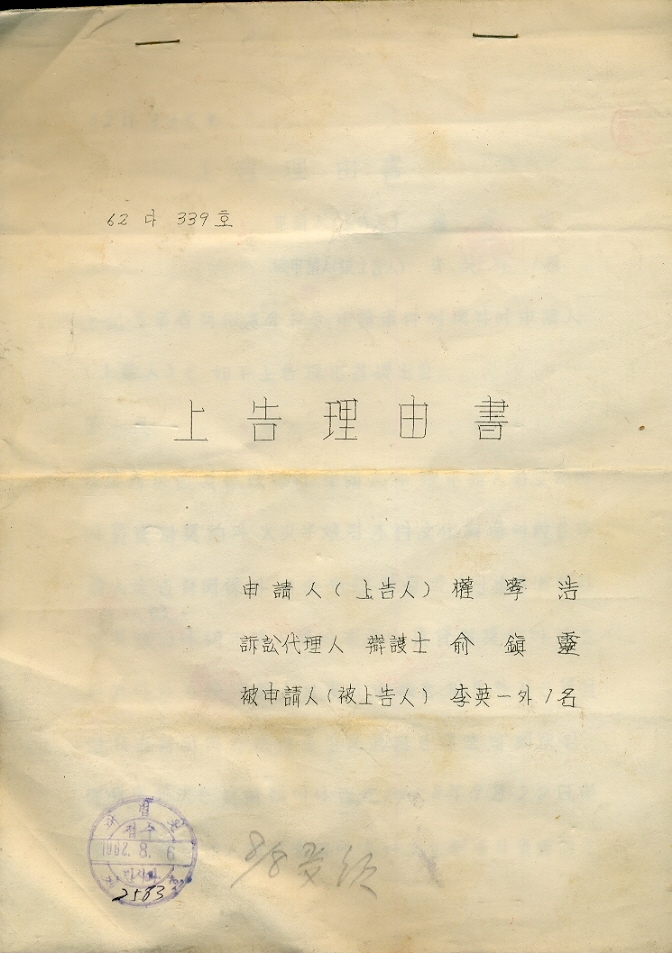 62 다 339 호
上告理由書
申請人(上告人) 權寧浩
訴訟代理人 辯護士 俞鎭靈
被申請人(被上告人) 李英一外1名
접수
1962. 8. 9
2563
8/8 受領